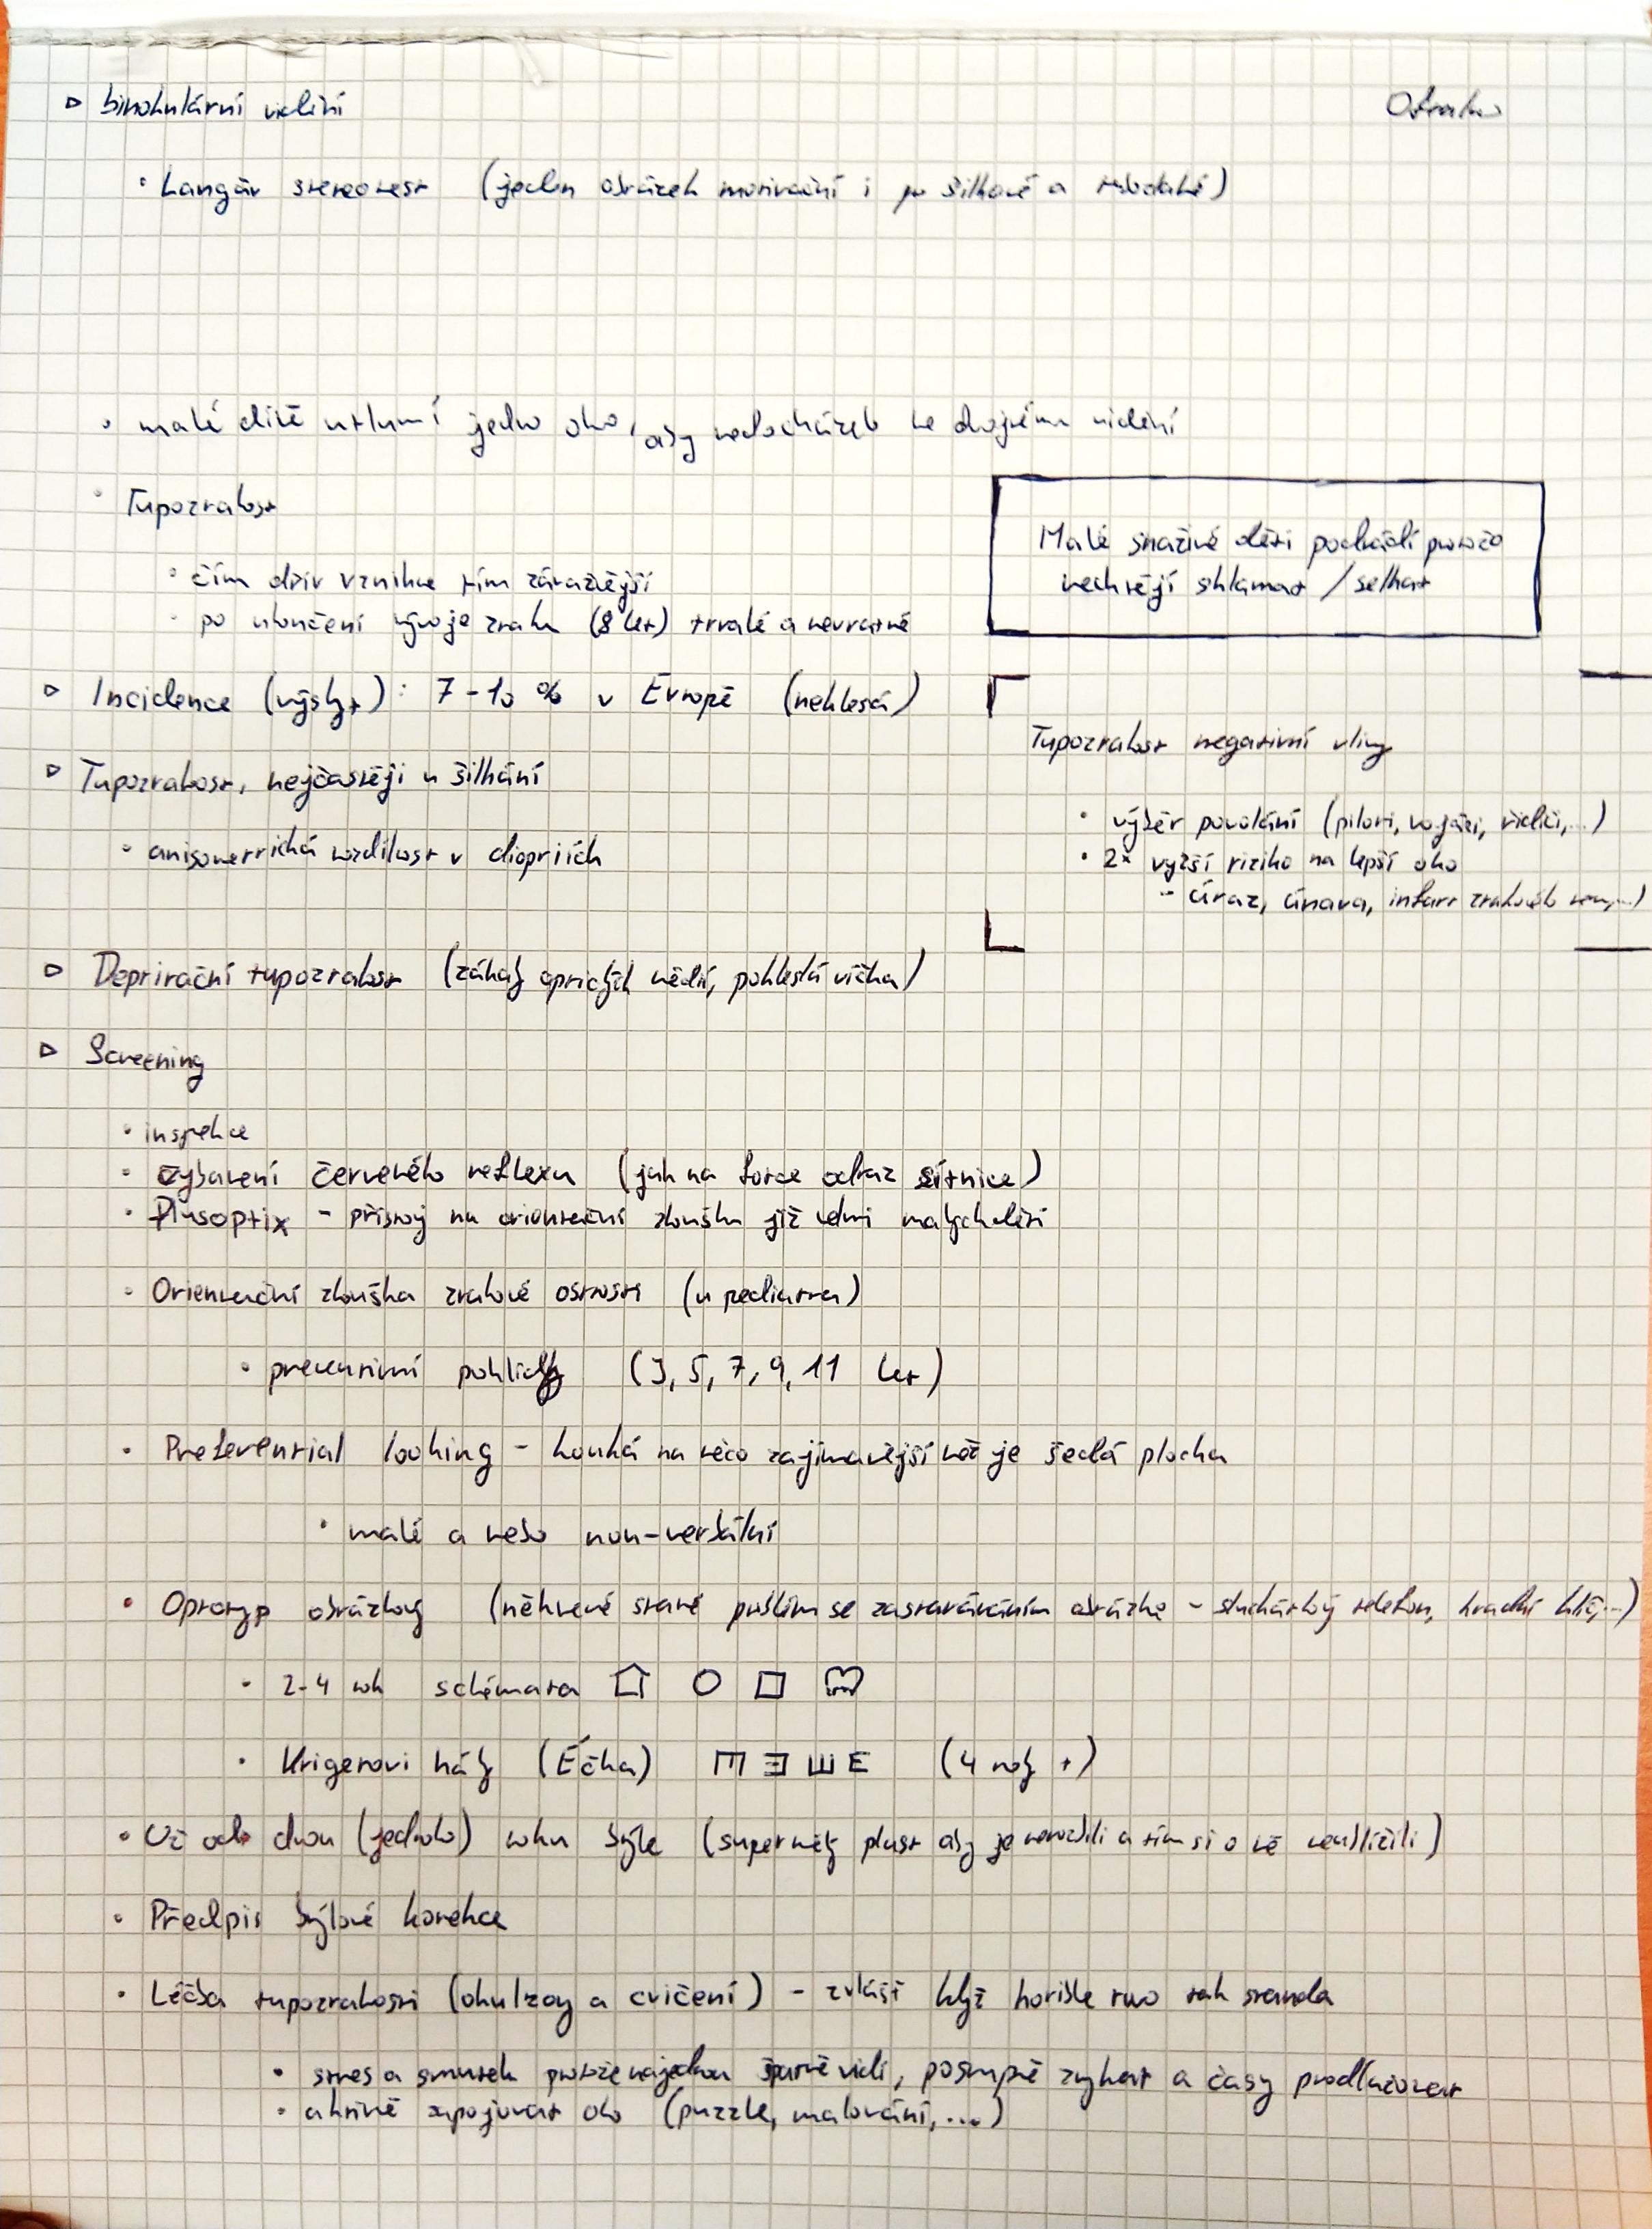 ▷ binokulární vidění
• Langův stereotest (jeden obrázek motivační i po šilhavé a
• malé dítě utlumí jedno oko, aby nedocházelo ke dvojému vidění
• Tupozrakost
• čím dřív vznikne tím závažnější
• po ukončení vývoje zraku (8 let) trvalé a nevratné
Malé snaživé děti podvádí protože
nechtějí sklamat / selhat
▷ Incidence (výskyt): 7-10 % v Evropě (neklesá)
▷ Tupozrakost, nejčastěji u šilhání
• anisometrická rozdílnost v dioptriích
Tupozrakost negativní vlivy
• výběr povolání (piloti, vojáci, řidiči,...)
• 2x vyžší riziko na lepší oko
- úraz, únava, infarkt zrakového
▷ Deprivační tupozrakost (zákaly optických médií, pokleslá víčka)
▷ Screening
• inspekce
• vybavení červeného reflexu (jak na fotce odraz sítnice)
• Plusoptix - přístroj na orientační zkoušku již velmi malých dětí
• Orientační zkouška zrakové ostrosti (u pediatra)
• preventivní pohlidky (3, 5, 7, 9, 11 let)
• Preferential looking - kouká na něco zajímavější než je šedá plocha
• malé a nebo non-verbální
• Optotyp obrázkový (některé staré problém se zastaráváním obrázků - sluchátkový telefon, hradní klíč,...)
• 2-4 rok schémata
• Krigerovi háky (Éčka) E Ǝ Ш E (4 roky +)
• Už od dvou (jednoho) roku brýle (superměký plast aby je nerozbili a tím si o ně neublížili)
• Předpis brýlové korekce
• Léčba tupozrakosti (okulzory a cvičení) - zvlášť když horišle
• stres a smutek protože najednou špatně vidí, postupně zvykat a časy prodlužovat
• aktivně zapojovat oko (puzzle, malování,...)